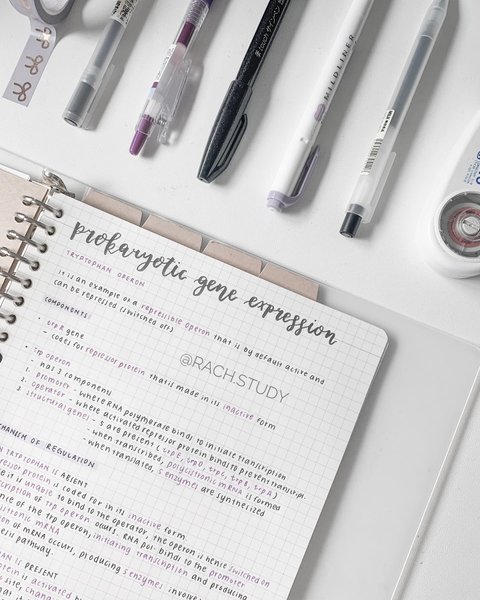 MILDLINER
prokaryotic gene expression
TRYPTOPHAN OPERON
it is an example of a repressible operon that is by default active and
can be repressed (switched off)
COMPONENTS:
• trp R gene
- codes for repressor protein that is made in its inactive form
• trp operon
has 3 components
1. promoter - where RNA polymerase binds to initiate transcription
2. operator - where activated repressor protein binds to prevent transcript.
3. structural genes - 5 are present (trp E, trp D, trp C, trp B, trp A)
- when transcribed, polycistronic mRNA is formed
- when translated, 5 enzymes are synthesized
@RACH.STUDY
CHANISM OF REGULATION
TRYPTOPHAN is ABSENT
pressor protein is coded for in its inactive form
it is unable to bind to the operator, the operon is hence switched on
scription of trp operon occurs. RNA pol. binds to the promoter
ence of the trp operon, initiating transcription and producing
istronic mRNA
tion of mRNA occurs, producing 5 enzymes involve
esis pathway.
AN IS PRESENT
protein is activated b
site, chang